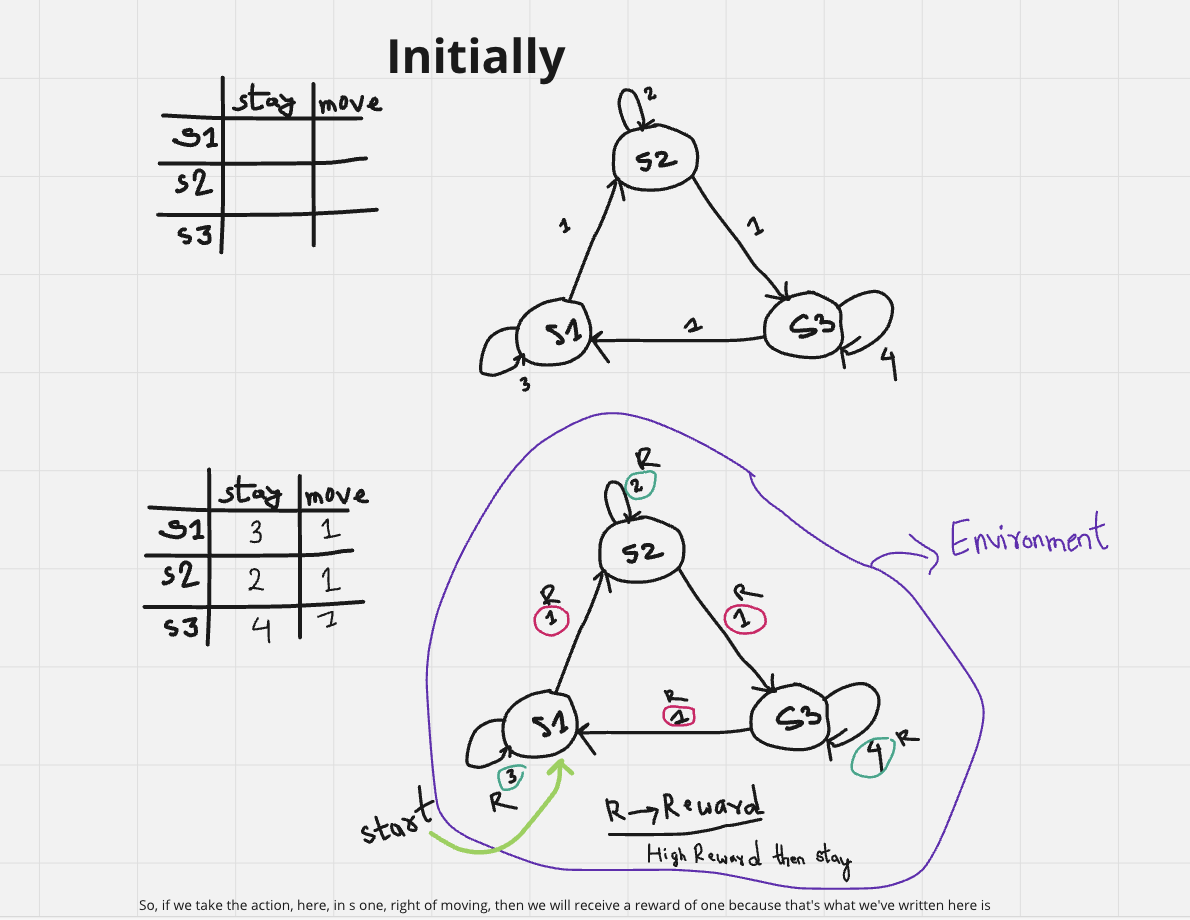 Initially
stay move
S1
S2
S3
2
S2
1
1
S1
1
S3
3
4
stay move
S1 3 1
S2 2 1
S3 4 1
R
2
S2
R
1
R
1
Environment
R
1
S1
S3
3
R
4 R
start
R → Reward
High Reward then stay
So, if we take the action, here, in s one, right of moving, then we will receive a reward of one because that's what we've written here is